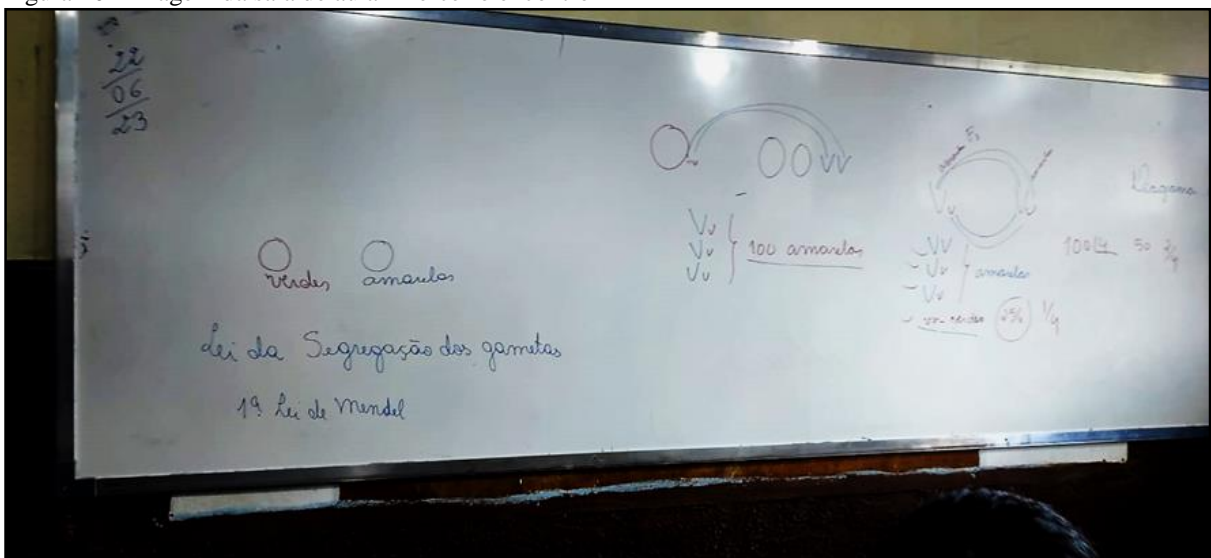 22
06
23
verdes amarelos
Lei da Segregação dos gametas
1ª Lei de Mendel
Vv
Vv
Vv
100 amarelos
V v
VV
Vv
Vv
amarelas
vv - verdes 25% 1/4
100 4 50 2/4